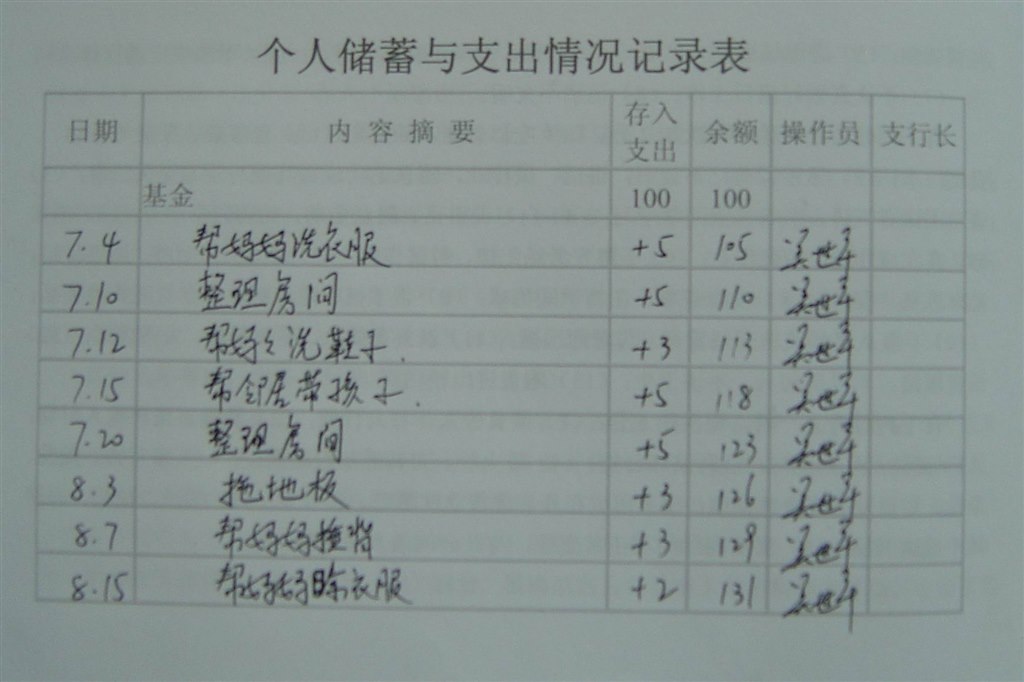 个人储蓄与支出情况记录表
日期 内容摘要 存入支出 余额 操作员 支行长
基金 100 100
7.4 帮妈妈洗衣服 +5 105
7.10 整理房间 +5 110
7.12 帮妈妈洗鞋子. +3 113
7.15 帮邻居带孩子. +5 118
7.20 整理房间 +5 123
8.3 拖地板 +3 126
8.7 帮妈妈捶背 +3 129
8.15 帮妈妈晾衣服 +2 131